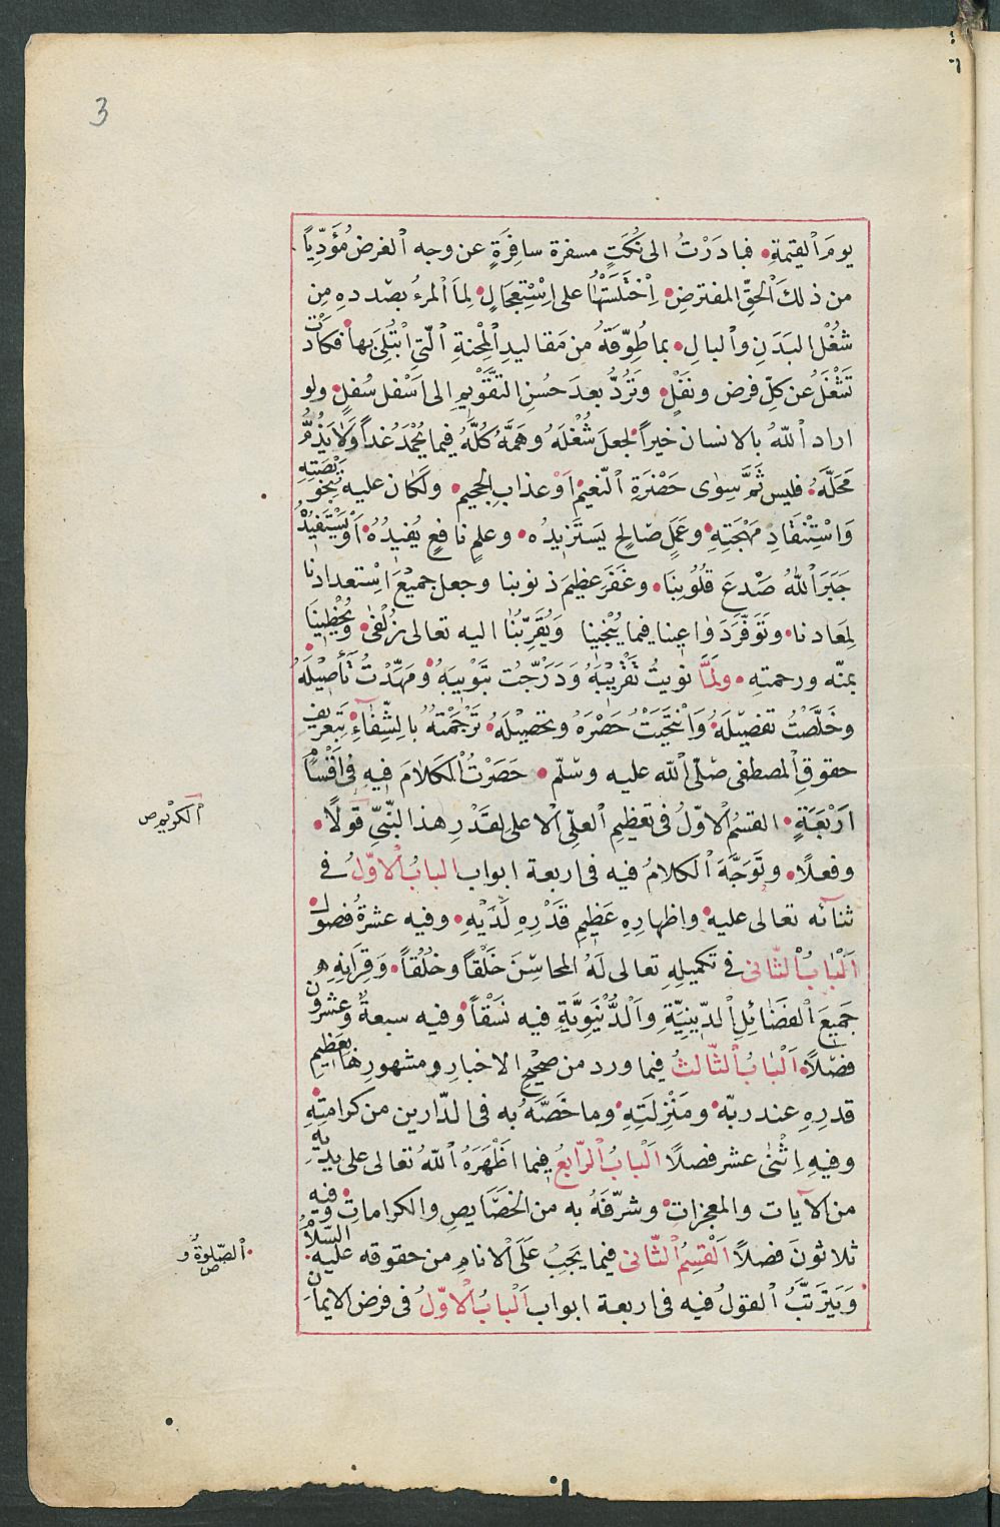 3
يومَ القيمةِ • فبادَرْتُ الى نُكَتٍ مسفرة سافِرَةٍ عن وجه الغرض مُؤَدِّياً
من ذلكَ الحقِّ المفترضِ • اِخْتَلَسْتُهٰا على اِسْتِعجَالٍ • لِمَا المرءُ بصدده مِن
شُغْل البَدَنِ والبالِ • بما طُوِّقَهُ من مَقاليدِ المِحْنةِ الّتى ابْتُلِىَ بها • فكادَتْ
تَشْغَلُ عن كلِّ فرض ونفْلٍ • وَتَرُدُّ بعدَ حُسنِ التقْوِيمِ الى اَسْفل سُفلٍ • ولو
اراد اللّهُ بالانسان خيراً لجعلَ شُغْلَهُ وهَمَّهُ كُلَّهُ فيما يُحْمَدُ غداً وَلَا يُذَمُّ
مَحَلَّهُ • فليس ثَمَّ سِوٰى حَضْرَةِ النّعيمِ اَوْ عذابِ الجحيم • ولَكان عليه بخُوَيْصَتِهِ
وَاسْتِنْقَاذِ مهْجَتِهِ • وعَمَلٍ صَالحٍ يَستَزِيدُه • وعلمٍ نافعٍ يُفيدُهُ • اَوْ يَسْتَفِيدُهُ
جَبَرَ اللّٰهُ صَدْعَ قُلُوبِنَا • وغَفَرَ عظيمَ ذنوبنا وجعل جميعَ اسْتعدادنا
لِمَعادنا • وتَوَفّرَ دَواعينا فيما يُنْجينا وَيُقَرِّبُنٰا اليه تعالى زُلْفٰى • ويُحْظِينَا
بمنّه ورحمتهِ • ولَمَّا نويتُ تَقْرِيبَهُ وَدَرَّجْت تَبْوِيبَهُ • ومَهّدْتُ تَأصِيْلَهُ
وخَلَّصْتُ تفصِيْلَهُ • وَانْتَحَيْتُ حَصْرَهُ وتحصِيْلَهُ • تَرْجَمْتهُ بالشِّفَآءِ بتَعْرِيفِ
حقوقِ المصطفى صلّى اللّه عليه وسلّم • حَصَرْتُ الكَلامَ فيه فى اَقْسَامٍ
اَرْبَعَةٍ • القسمُ الاوّلُ فى تعْظيمِ العلّى الاعلى لقدْرِ هذا النّبىِّ قَولًا •
وفعلًا • وتَوَجَّهَ الكلامُ فيه فى اربعة ابواب البابُ الاَوّلُ فى
ثنآئه تعالى عليه • واظهارِهِ عَظِيمِ قَدْرِهِ لَدَيْهِ • وفيه عشرةُ فصول
اَلْبٰابُ الثّانى فى تكميلِهِ تعالى لَهُ المحاسِنَ خَلْقاً وخُلُقاً • وَقِرَانِهِ
جَمِيعَ الفضَائِلِ الدّينِيَّةِ وَالْدُّنْيَوِيَّةِ فيه نَسَقاً • وفيه سبعةٌ وعشرون
فصْلًا • اَلْبٰابُ الثّالثُ فيما ورد من صحيحِ الاخبارِ ومشهورِها بعَظِيمِ
قدرِهِ عند ربّه • ومَنْزِلَتِهِ • وما خَصَّهُ به فى الدّارين من كرامتهِ
وفيهِ اِثْنٰى عشر فصلًا اَلْبابُ الرّابعُ فيما اظْهَرَهُ اللّٰهُ تعالى على يديْهِ
من الآيات والمعجزات • وشرّفَهُ به من الخَصَايصِ والكرامات • وفيه
ثلاثونَ فصلًا اَلْقِسمُ الثّانى فيما يَجِبُ عَلَى الانامِ من حقوقه عليه السّلامُ
وَيَترَتَّبُ القولُ فيه فى اربعة ابواب اَلْبابُ الاَوّلُ فى فرض الايمان
الكريم ص
الصّلوةُ و
ص